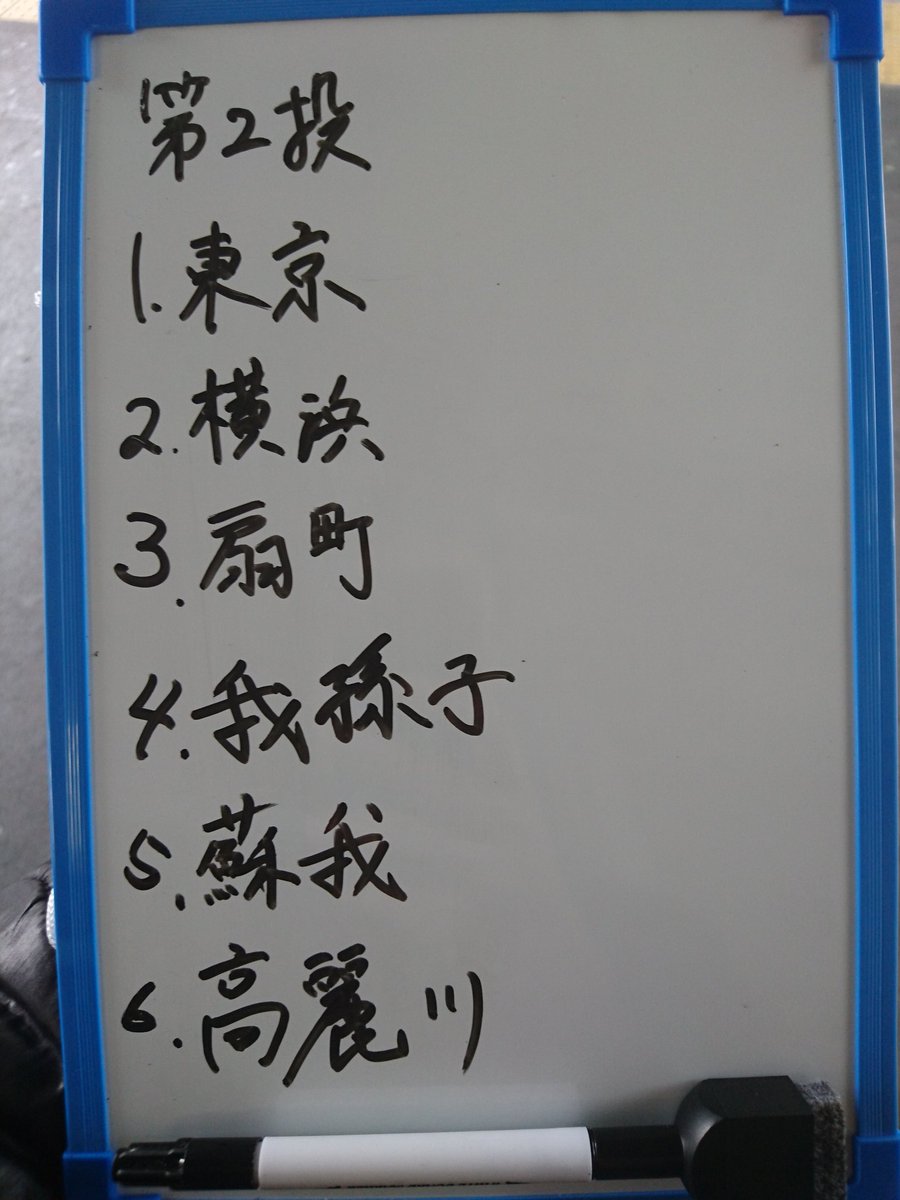 第2投
1.東京
2.横浜
3.扇町
4.我孫子
5.蘇我
6.高麗川